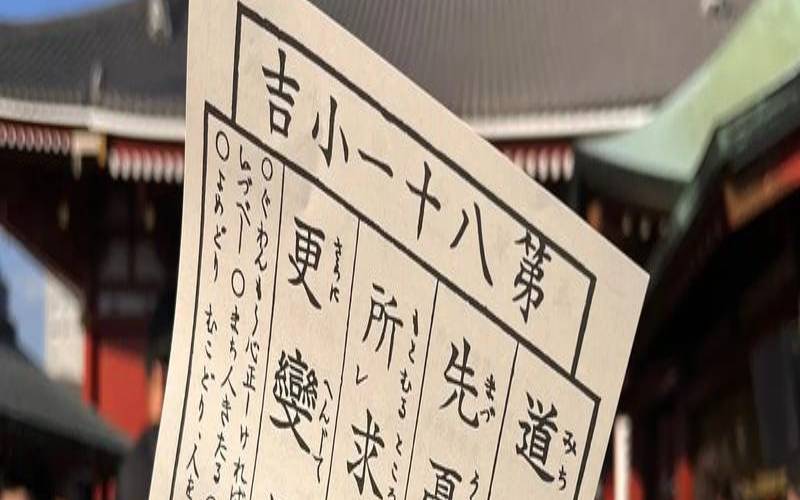 第八十一小吉
道
みち
先
まづ
所レ求
もとむるところ
更變
さらに へんじて
〇ぐわんもう心正しければ
〇まち人きたる
〇よめどり むこどり、人を